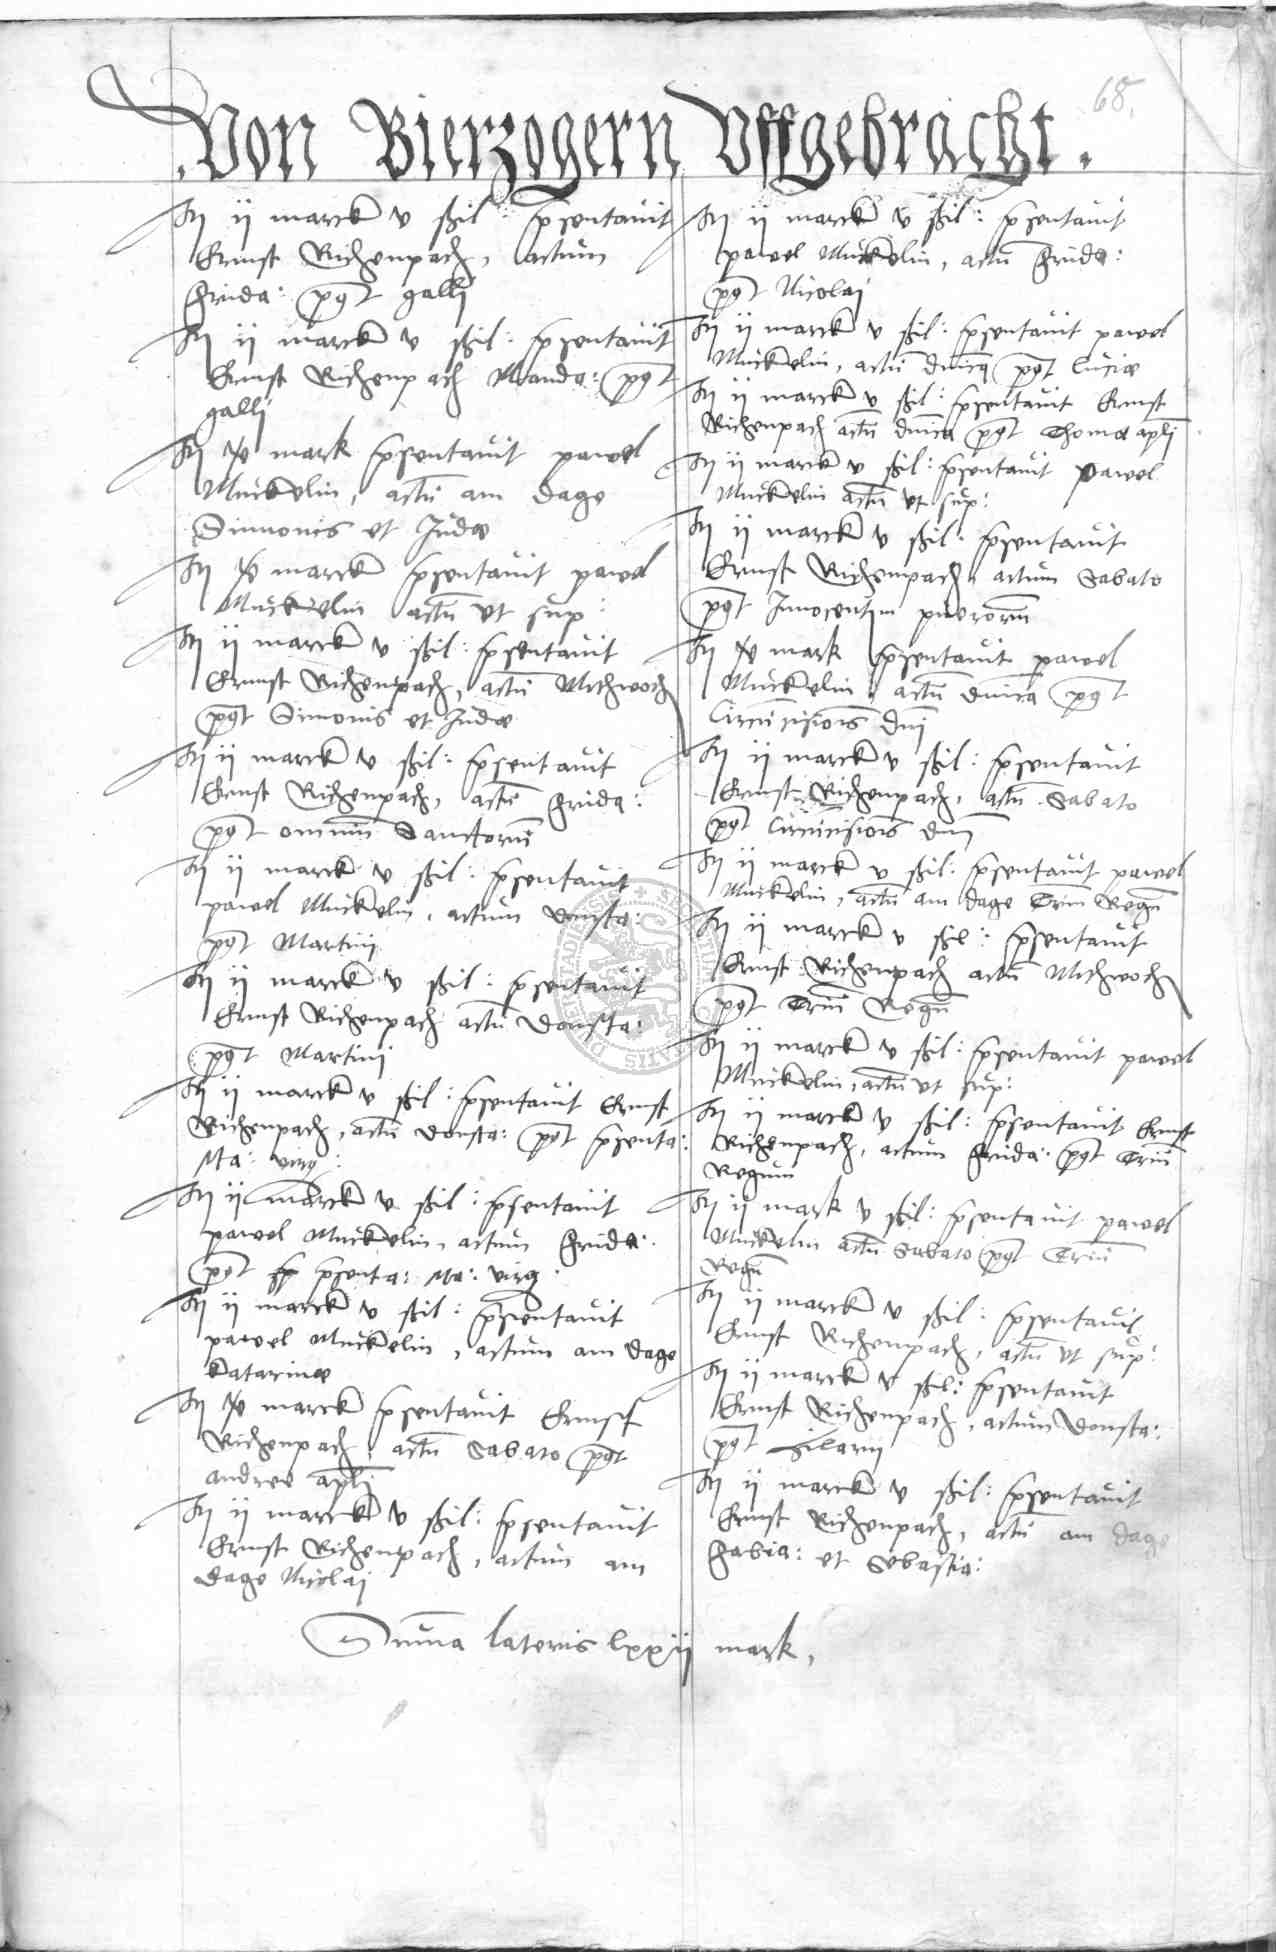 68.
Von Bierzogern Uffgebracht.
It ij marck v ßil: psentauit
Ernst Richenpach, actum
frida: post galli
It ij marck v ßil: psentauit
Ernst Richenpach Manda: post
galli
It mark psentauit pawel
Muckelin, actu am dage
Simonis et Jude
It marck psentauit pawel
Muckelin actu ut sup:
It ij marck v ßil: psentauit
Ernnst Richenpach, actu Mithwoch
post Simonis et Jude
It ij marck v ßil: psentauit
Ernst Richenpach, actu frida:
post omniu Sanctoru
It ij marck v ßil: psentauit
pawel Muckelin, actum donsta:
post Martini
It ij marck v ßil: psentauit
Ernst Richenpach actu Donsta:
post Martini
It ij marck v ßil: psentauit Ernst
Richenpach, actu donsta: post psenta:
Ma: virg:
It ij marck v ßil: psentauit
pawel Muckelin, actum frida:
post psenta: Ma: virg:
It ij marck v ßil: psentauit
pawel Muckelin, actum am dage
Katarine
It marck psentauit Ernst
Richenpach, actu Sabato post
andree apli
It ij marck v ßil: psentauit
Ernst Richenpach, actum am
dage Nicolaj
It ij marck v ßil: psentauit
pawel Muckelin, actu frida:
post Nicolaj
It ij marck v ßil: psentauit pawel
Muckelin, actu dnica post Lucie
It ij marck v ßil: psentauit Ernst
Richenpach actu dnica post Thome apli
It ij marck v ßil: psentauit pawel
Muckelin actu ut sup:
It ij marck v ßil: psentauit
Ernst Richenpach, actum Sabato
post Innocentim pueroru
It mark psentauit pawel
Muckelin, actu dnica post
Circucisiois dni
It ij marck v ßil: psentauit
Ernst Richenpach, actu Sabato
post Circucisiois dni
It ij marck v ßil: psentauit pawel
Muckelin, actu am dage Triu Regu
It ij marck v ßil: psentauit
Ernst Richenpach actu Mithwoch
post Triu Regu
It ij marck v ßil: psentauit pawel
Muckelin, actu ut sup:
It ij marck v ßil: psentauit Ernst
Richenpach, actum frida: post Triu
Regum
It ij mark v ßil: psentauit pawel
Muckelin actu Sabato post Triu
Regu
It ij marck v ßil: psentauit
Ernst Richenpach, actu ut sup:
It ij marck v ßil: psentauit
Ernst Richenpach, actum Donsta:
post Hilarij
It ij marck v ßil: psentauit
Ernst Richenpach, actu am dage
Fabia: et Sebastia:
Suma lateris lxxij mark,